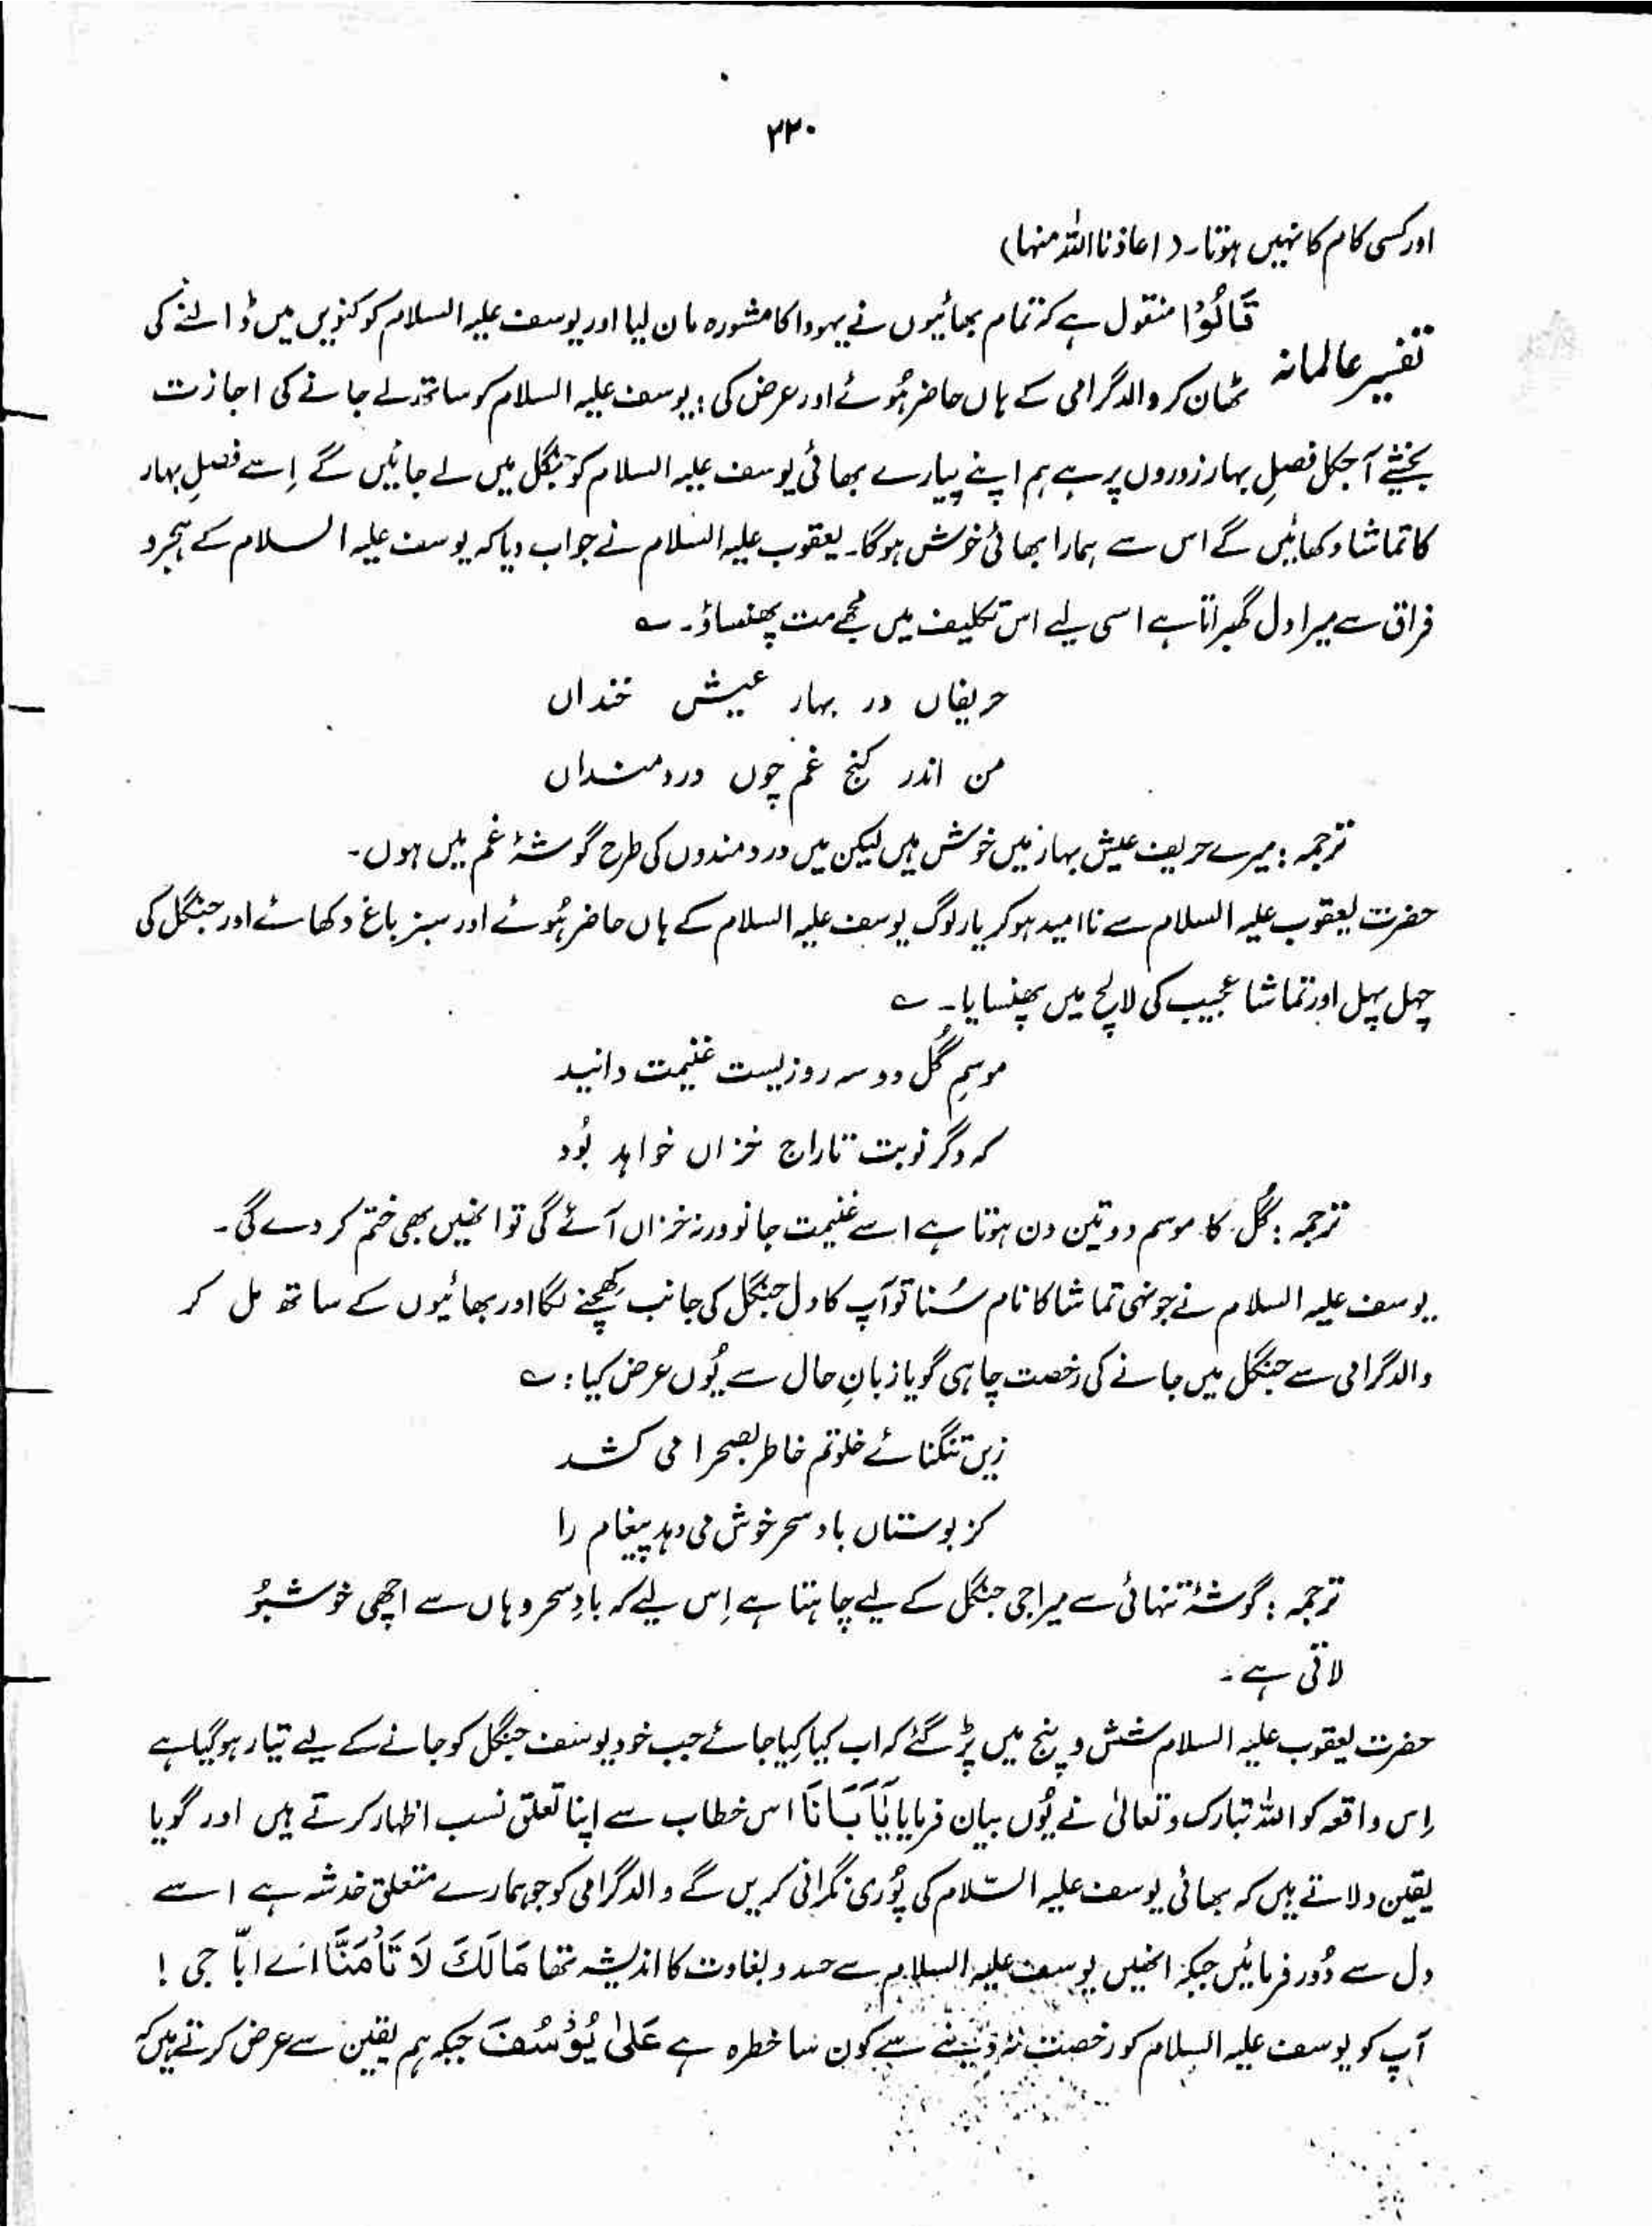 ۲۲۰
اور کسی کام کا نہیں ہوتا۔ (اعاذنا اللہ منہا)
تفسیر عالمانہ
قَالُوْا منقول ہے کہ تمام بھائیوں نے یہودا کا مشورہ مان لیا اور یوسف علیہ السلام کو کنویں میں ڈالنے کی
ٹھان کر والد گرامی کے ہاں حاضر ہُوئے اور عرض کی؛ یوسف علیہ السلام کو ساتھ لے جانے کی اجازت
بخشئے آجکل فصلِ بہار زوروں پر ہے ہم اپنے پیارے بھائی یوسف علیہ السلام کو جنگل میں لے جائیں گے اِسے فصلِ بہار
کا تماشا دکھائیں گے اس سے ہمارا بھائی خوش ہوگا۔ یعقوب علیہ السلام نے جواب دیا کہ یوسف علیہ السلام کے ہجر و
فراق سے میرا دل گھبراتا ہے اسی لیے اس تکلیف میں مجھے مت پھنساؤ۔ ؎
حریفاں در بہار عیش خنداں
من اندر کنج غم چوں دردمنداں
ترجمہ : میرے حریف عیش بہار میں خوش ہیں لیکن میں دردمندوں کی طرح گوشۂ غم میں ہوں۔
حضرت یعقوب علیہ السلام سے ناامید ہو کر یار لوگ یوسف علیہ السلام کے ہاں حاضر ہُوئے اور سبز باغ دکھائے اور جنگل کی
چہل پہل اور تماشا عجیب کی لالچ میں پھنسایا۔ ؎
موسمِ گُل دو سہ روزیست غنیمت دانید
کہ دگر نوبت تاراج خزاں خواہد بُود
ترجمہ : گُل کا موسم دو تین دن ہوتا ہے اسے غنیمت جانو ورنہ خزاں آئے گی تو انھیں بھی ختم کر دے گی۔
یوسف علیہ السلام نے جونہی تماشا کا نام سُنا تو آپ کا دل جنگل کی جانب کھچنے لگا اور بھائیوں کے ساتھ مل کر
والد گرامی سے جنگل میں جانے کی رخصت چاہی گویا زبانِ حال سے یُوں عرض کیا : ؎
زیں تنگنائے خلوتم خاطر بصحرا می کشد
کز بوستاں باد سحر خوش می دہد پیغام را
ترجمہ : گوشۂ تنہائی سے میرا جی جنگل کے لیے چاہتا ہے اِس لیے کہ بادِ سحر وہاں سے اچھی خوشبُو
لاتی ہے۔
حضرت یعقوب علیہ السلام شش و پنج میں پڑ گئے کہ اب کیا کِیا جائے جب خود یوسف جنگل کو جانے کے لیے تیار ہوگیا ہے
اِس واقعہ کو اللہ تبارک و تعالیٰ نے یُوں بیان فرمایا یٰۤاَبَانَا اس خطاب سے اپنا تعلق نسب اظہار کرتے ہیں اور گویا
یقین دلاتے ہیں کہ بھائی یوسف علیہ السّلام کی پُوری نگرانی کریں گے والد گرامی کو جو ہمارے متعلق خدشہ ہے اسے
دل سے دُور فرمائیں جبکہ انھیں یوسف علیہ السلام سے حسد و بغاوت کا اندیشہ تھا مَا لَكَ لَا تَاْمَنَّا اے ابّا جی !
آپ کو یوسف علیہ السلام کو رخصت نہ دینے سے کون سا خطرہ ہے عَلٰی یُوْسُفَ جبکہ ہم یقین سے عرض کرتے ہیں کہ